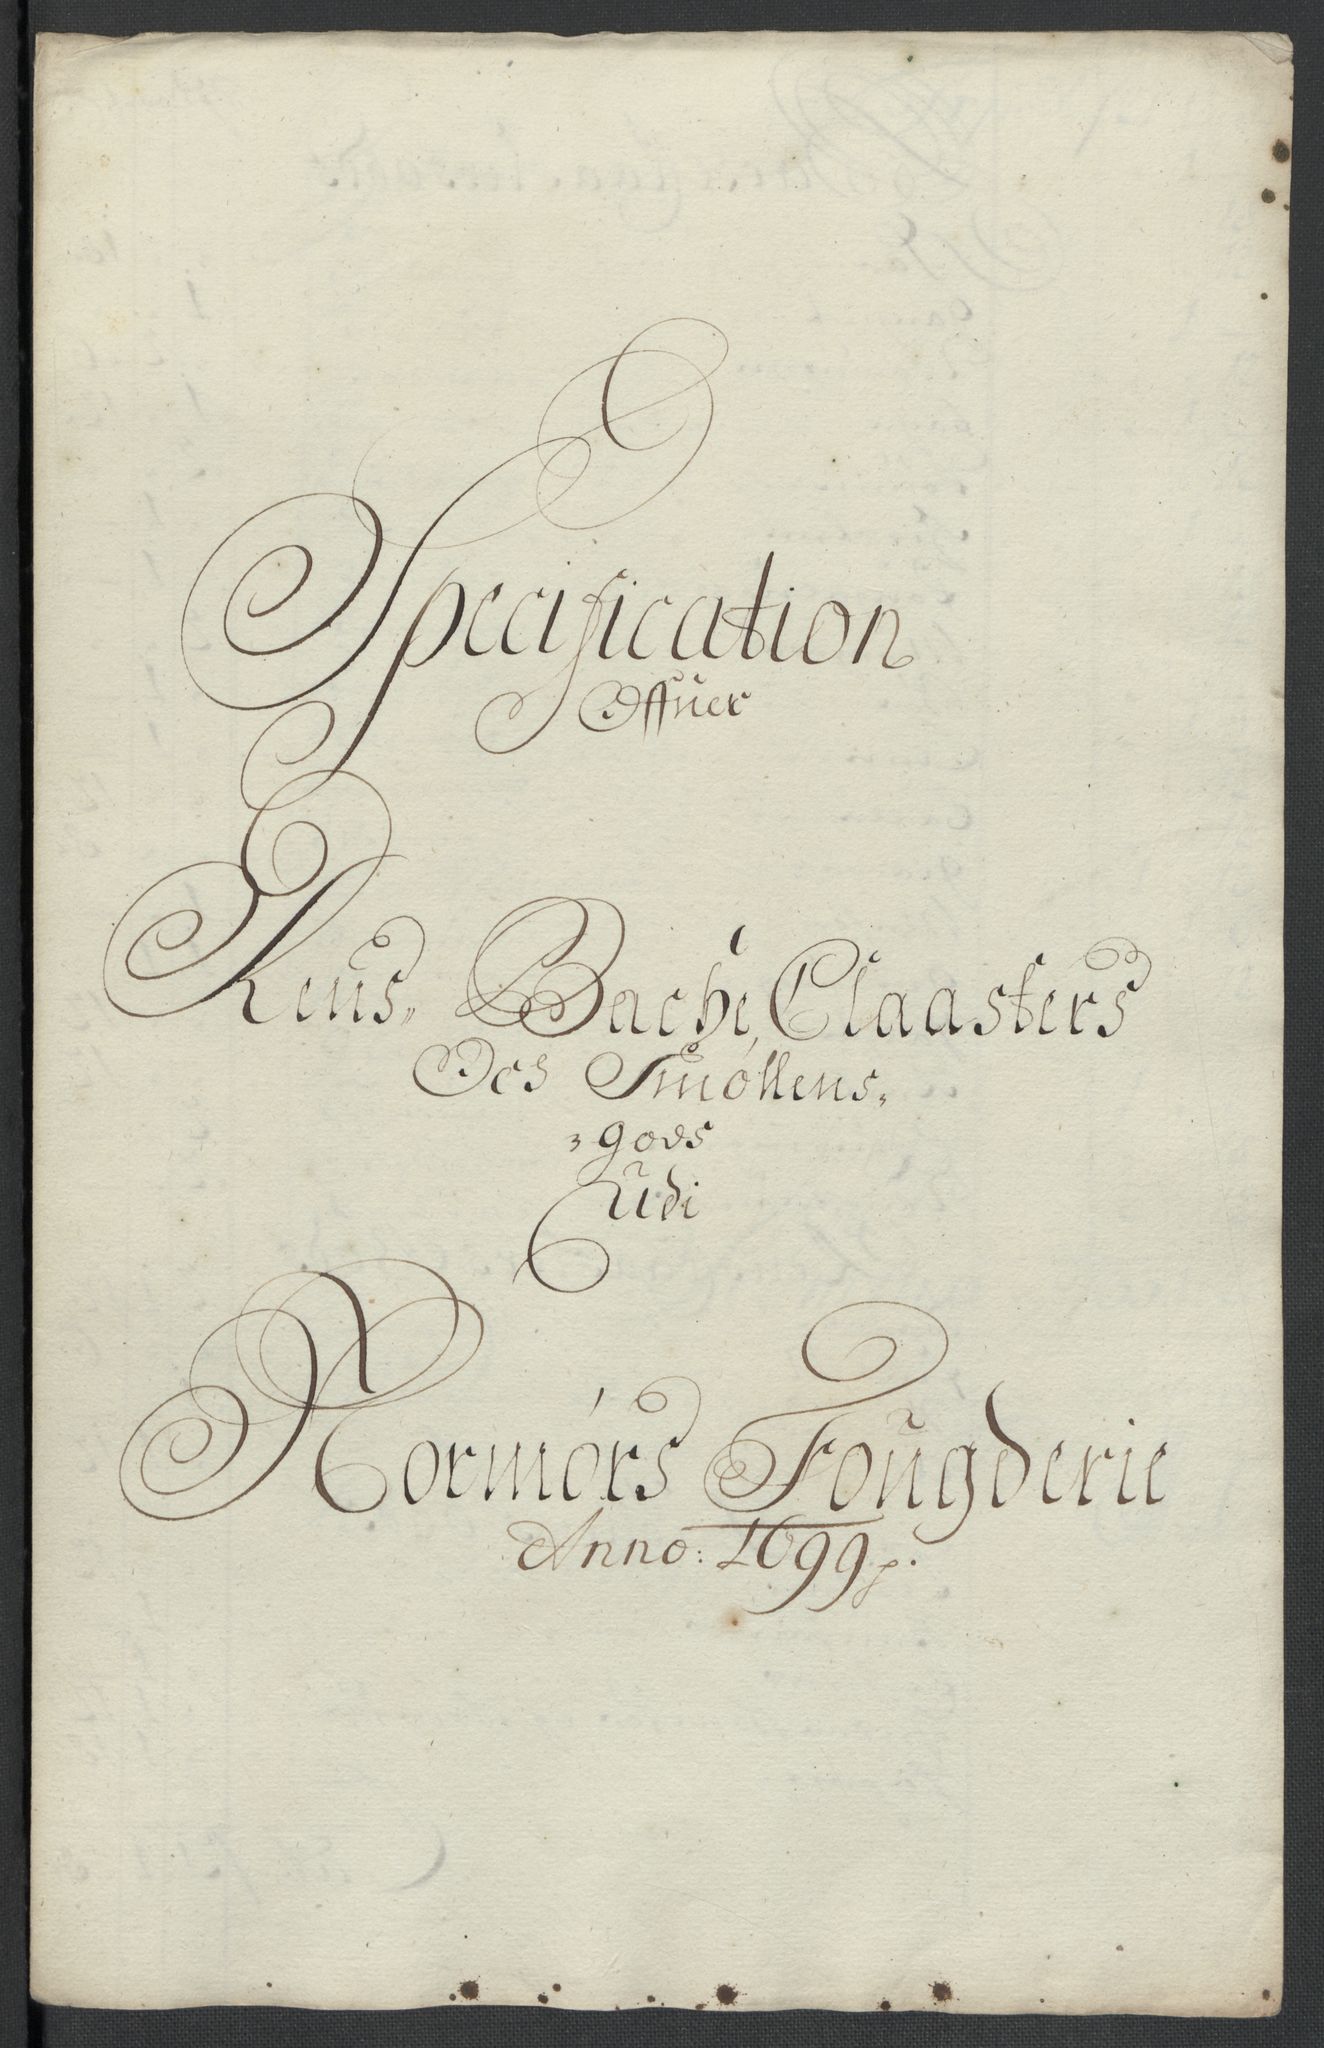 Specification
Offuer
Reins- Bache, Claasters
Och Smøllens-
-gods
Udi
Normørs Fougderie
Anno: 1699